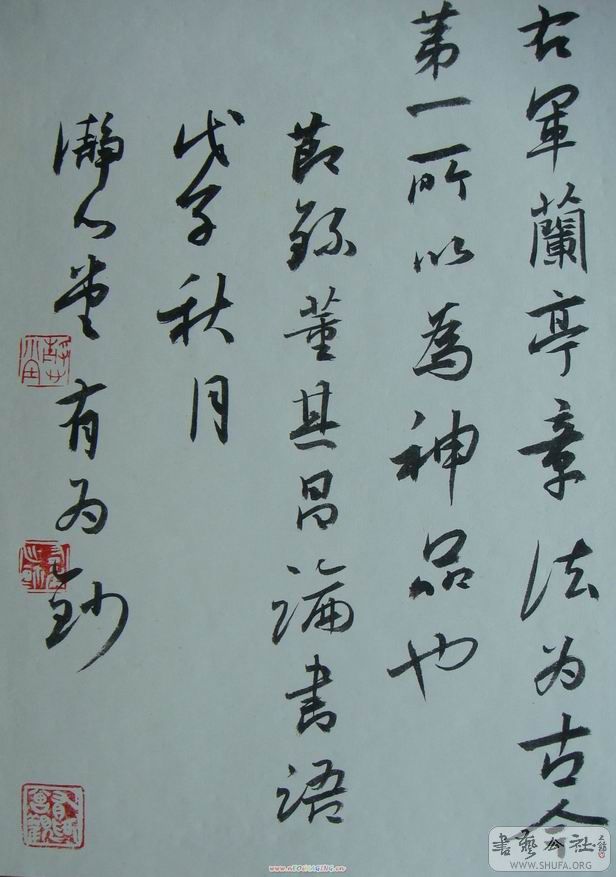 右軍蘭亭章法为古今
第一所以為神品也
節錄董其昌論書語
戊子秋月
瀞心堂有为鈔
書藝公社
WWW.SHUFA.ORG